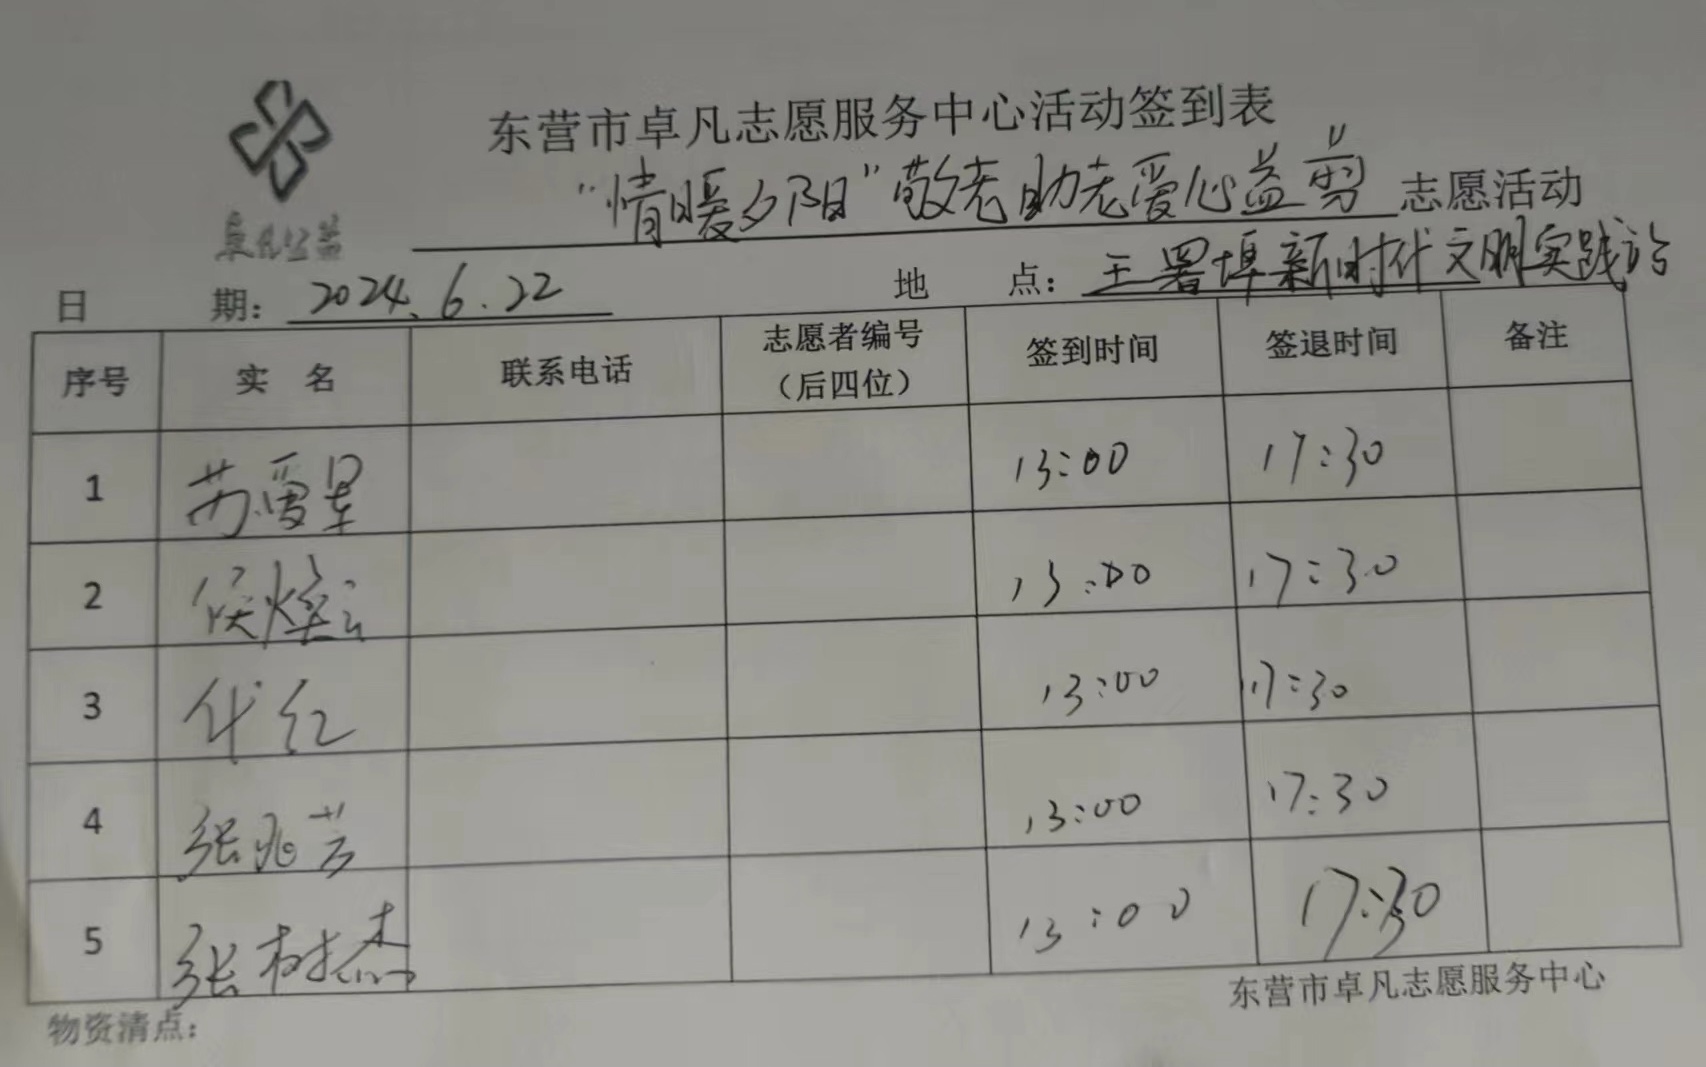 东营市卓凡志愿服务中心活动签到表
"情暖夕阳"敬老助老爱心益剪 志愿活动
卓凡公益
日 期：2024.6.22 地 点：王署埠新时代文明实践站
序号 实 名 联系电话 志愿者编号（后四位） 签到时间 签退时间 备注
1 苏雪星 13:00 17:30
2 侯 13:00 17:30
3 代红 13:00 17:30
4 张兆芳 13:00 17:30
5 张树杰 13:00 17:30
东营市卓凡志愿服务中心
物资清点：